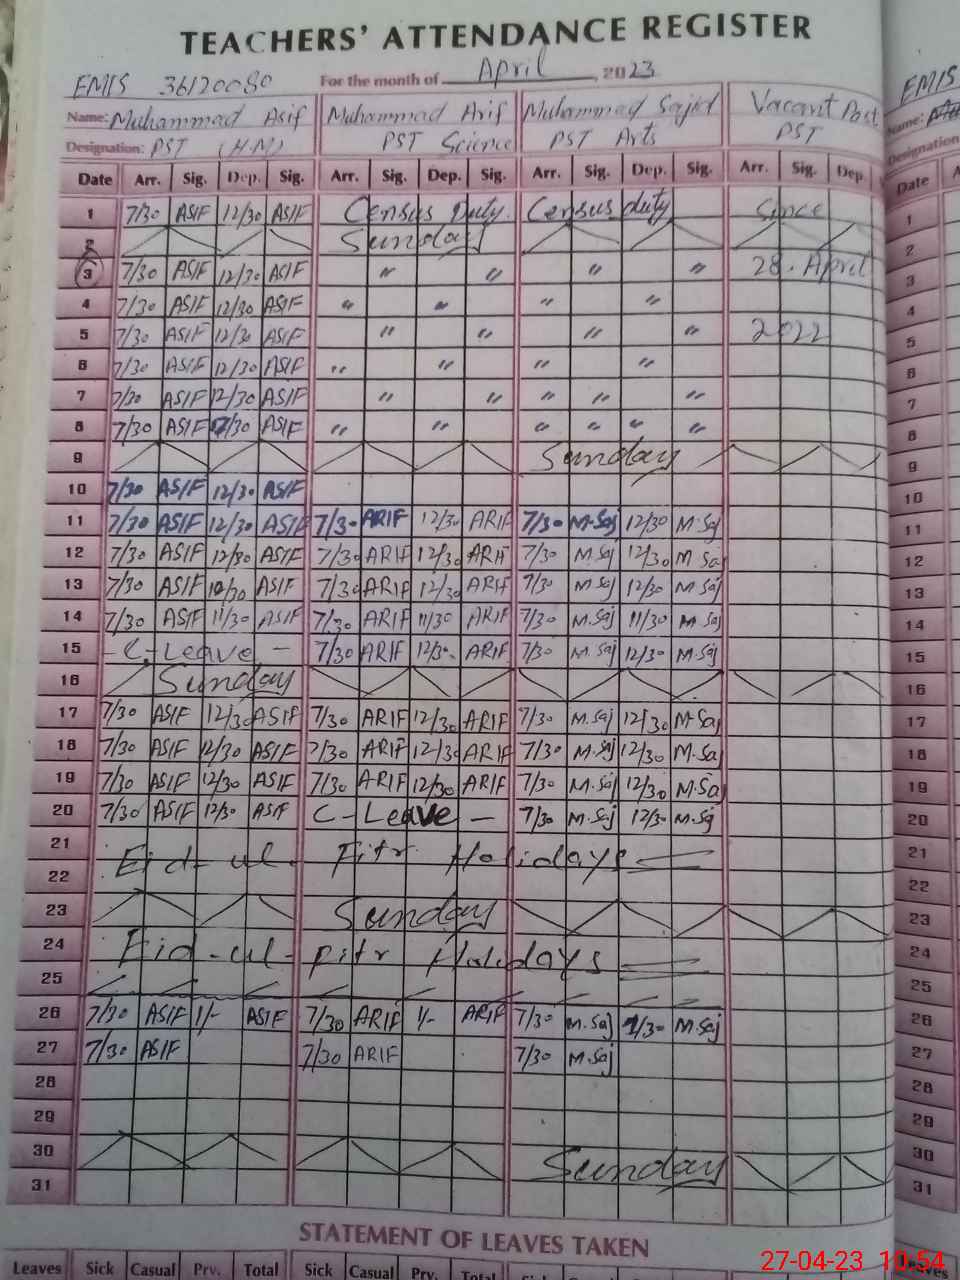 TEACHERS' ATTENDANCE REGISTER
EMIS 36120080 For the month of April, 2023
Name: Muhammad Asif Muhammad Arif Muhammad Sajid Vacant Post
Designation: PST (H.M) PST Science PST Arts PST
Date Arr. Sig. Dep. Sig. Arr. Sig. Dep. Sig. Arr. Sig. Dep. Sig. Arr. Sig. Dep.
1 7/30 ASIF 12/30 ASIF Census Duty. Census duty Since
2 Sunday
3 7/30 ASIF 12/30 ASIF " " " " 28. April
4 7/30 ASIF 12/30 ASIF " " " "
5 7/30 ASIF 12/30 ASIF " " " " 2022
6 7/30 ASIF 12/30 ASIF " " " "
7 7/30 ASIF 12/30 ASIF " " " " "
8 7/30 ASIF /30 ASIF " " " " " "
9 Sunday
10 7/30 ASIF 12/30 ASIF
11 7/30 ASIF 12/30 ASIF 7/30 ARIF 12/30 ARIF 7/30 M.Saj 12/30 M.Saj
12 7/30 ASIF 12/30 ASIF 7/30 ARIF 12/30 ARIF 7/30 M.Saj 12/30 M.Saj
13 7/30 ASIF 12/30 ASIF 7/30 ARIF 12/30 ARIF 7/30 M.Saj 12/30 M.Saj
14 7/30 ASIF 11/30 ASIF 7/30 ARIF 11/30 ARIF 7/30 M.Saj 11/30 M.Saj
15 - C. Leave - 7/30 ARIF 12/30 ARIF 7/30 M.Saj 12/30 M.Saj
16 Sunday
17 7/30 ASIF 12/30 ASIF 7/30 ARIF 12/30 ARIF 7/30 M.Saj 12/30 M.Saj
18 7/30 ASIF 12/30 ASIF 7/30 ARIF 12/30 ARIF 7/30 M.Saj 12/30 M.Saj
19 7/30 ASIF 12/30 ASIF 7/30 ARIF 12/30 ARIF 7/30 M.Saj 12/30 M.Saj
20 7/30 ASIF 12/30 ASIF C-Leave - 7/30 M.Saj 12/30 M.Saj
21 Eid-ul-Fitr Holidays
22
23 Sunday
24 Eid-ul-Fitr Holidays
25
26 7/30 ASIF 1/- ASIF 7/30 ARIF 1/- ARIF 7/30 M.Saj 1/30 M.Saj
27 7/30 ASIF 7/30 ARIF 7/30 M.Saj
28
29
30 Sunday
31
STATEMENT OF LEAVES TAKEN
Leaves Sick Casual Prv. Total Sick Casual Prv. Total
EMIS
Name:
Designation
Date
1
2
3
4
5
6
7
8
9
10
11
12
13
14
15
16
17
18
19
20
21
22
23
24
25
26
27
28
29
30
31
Leaves
27-04-23 10:54